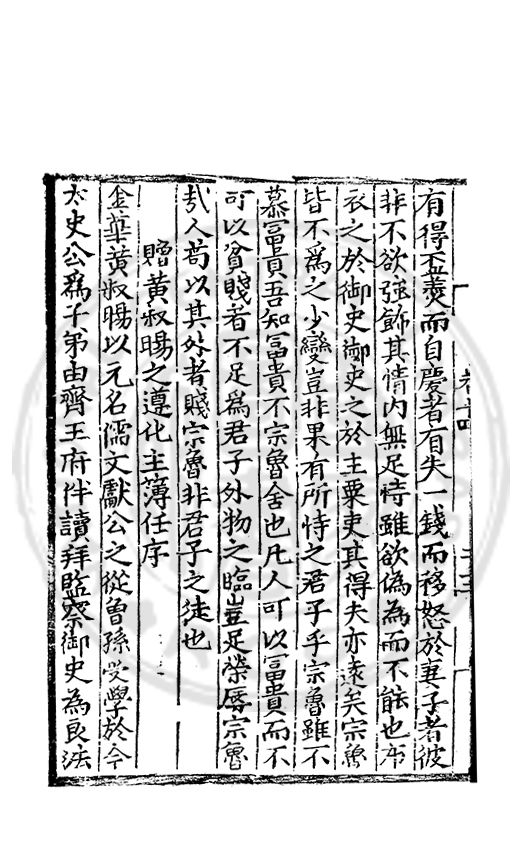 有得盃羮而自慶者有失一錢而移怒於妻子者彼
非不欲強飾其情内無足恃雖欲偽為而不能也布
衣之於御史御史之於主粟吏其得失亦遠矣宗魯
皆不為之少變豈非果有所恃之君子乎宗魯雖不
慕冨貴吾知冨貴不宗魯舍也凡人可以冨貴而不
可以貧賤者不足為君子外物之臨豈足榮辱宗魯
㢤人苟以其外者賤宗魯非君子之徒也
贈黄叔暘之遵化主簿任序
金華黄叔暘以元名儒文獻公之從曾孫受學於今
太史公為子弟由齊王府伴讀拜監察御史為良法